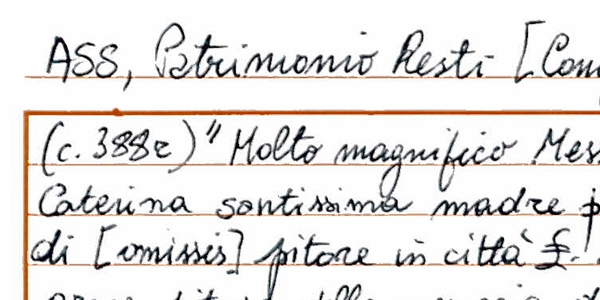 ASS, Patrimonio Resti [Com
(c. 388r) "Molto magnifico Mes
Caterina santissima madre p
di [omissis] pitore in città £.